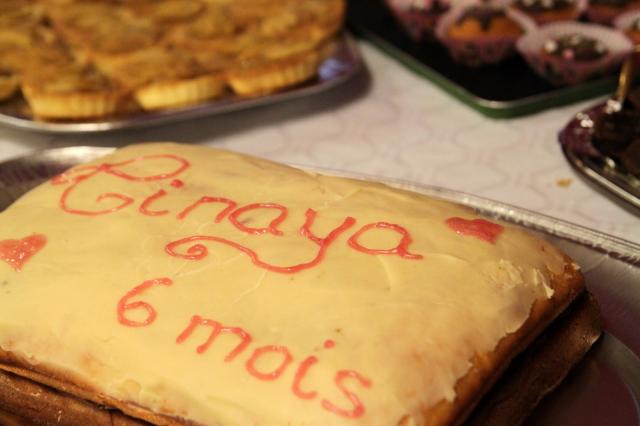 Tinaya
6 mois